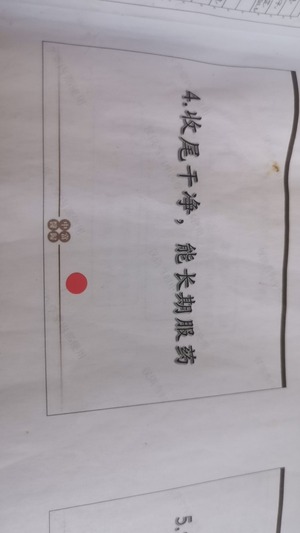 4.收尾干净，能长期服药
5.